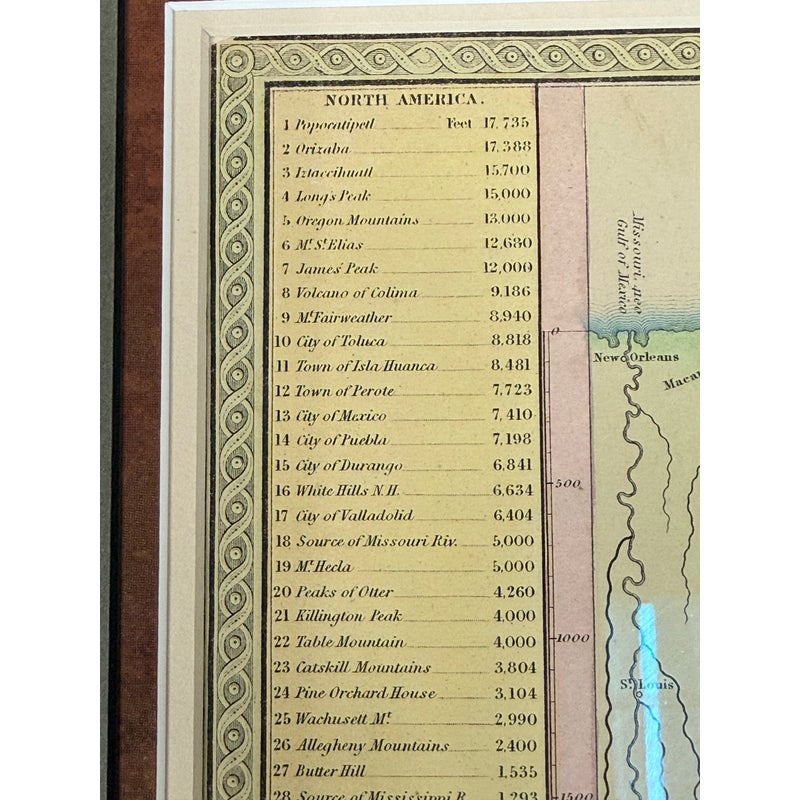 NORTH AMERICA.
1 Popocatipetl Feet 17,735
2 Orizaba 17,388
3 Iztaccihuatl 15,700
4 Long's Peak 15,000
5 Oregon Mountains 13,000
6 Mt. St. Elias 12,680
7 James' Peak 12,000
8 Volcano of Colima 9,186
9 Mt. Fairweather 8,940
10 City of Toluca 8,818
11 Town of Isla Huanca 8,481
12 Town of Perote 7,723
13 City of Mexico 7,410
14 City of Puebla 7,198
15 City of Durango 6,841
16 White Hills N.H. 6,634
17 City of Valladolid 6,404
18 Source of Missouri Riv. 5,000
19 Mt. Hecla 5,000
20 Peaks of Otter 4,260
21 Killington Peak 4,000
22 Table Mountain 4,000
23 Catskill Mountains 3,804
24 Pine Orchard House 3,104
25 Wachusett Mt. 2,990
26 Allegheny Mountains 2,400
27 Butter Hill 1,535
28 Source of Mississippi R. 1,293
Missouri,
Gulf of Mexico
0
New Orleans
500
1000
St. Louis
1500